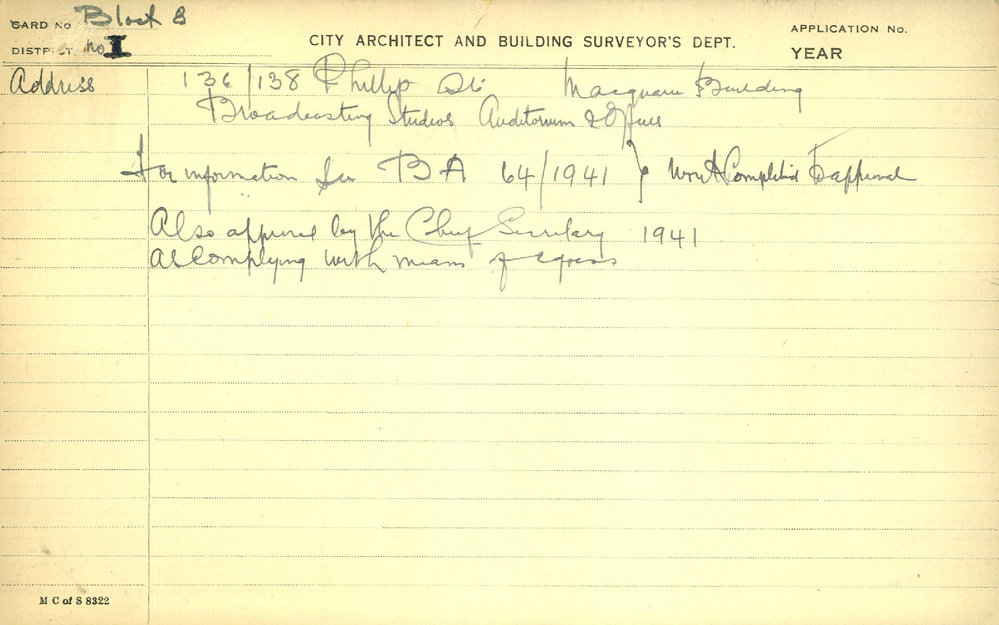 CARD No Block 8
DISTRICT No I
CITY ARCHITECT AND BUILDING SURVEYOR'S DEPT.
APPLICATION No.
YEAR
Address 136/138 Phillip St. Macquarie Building
Broadcasting Studios Auditorium & Offices
For information See B A 64/1941 } Work Completed To approval
Also approved by the Chief Secretary 1941
as complying with means of egress
M C of S 8322